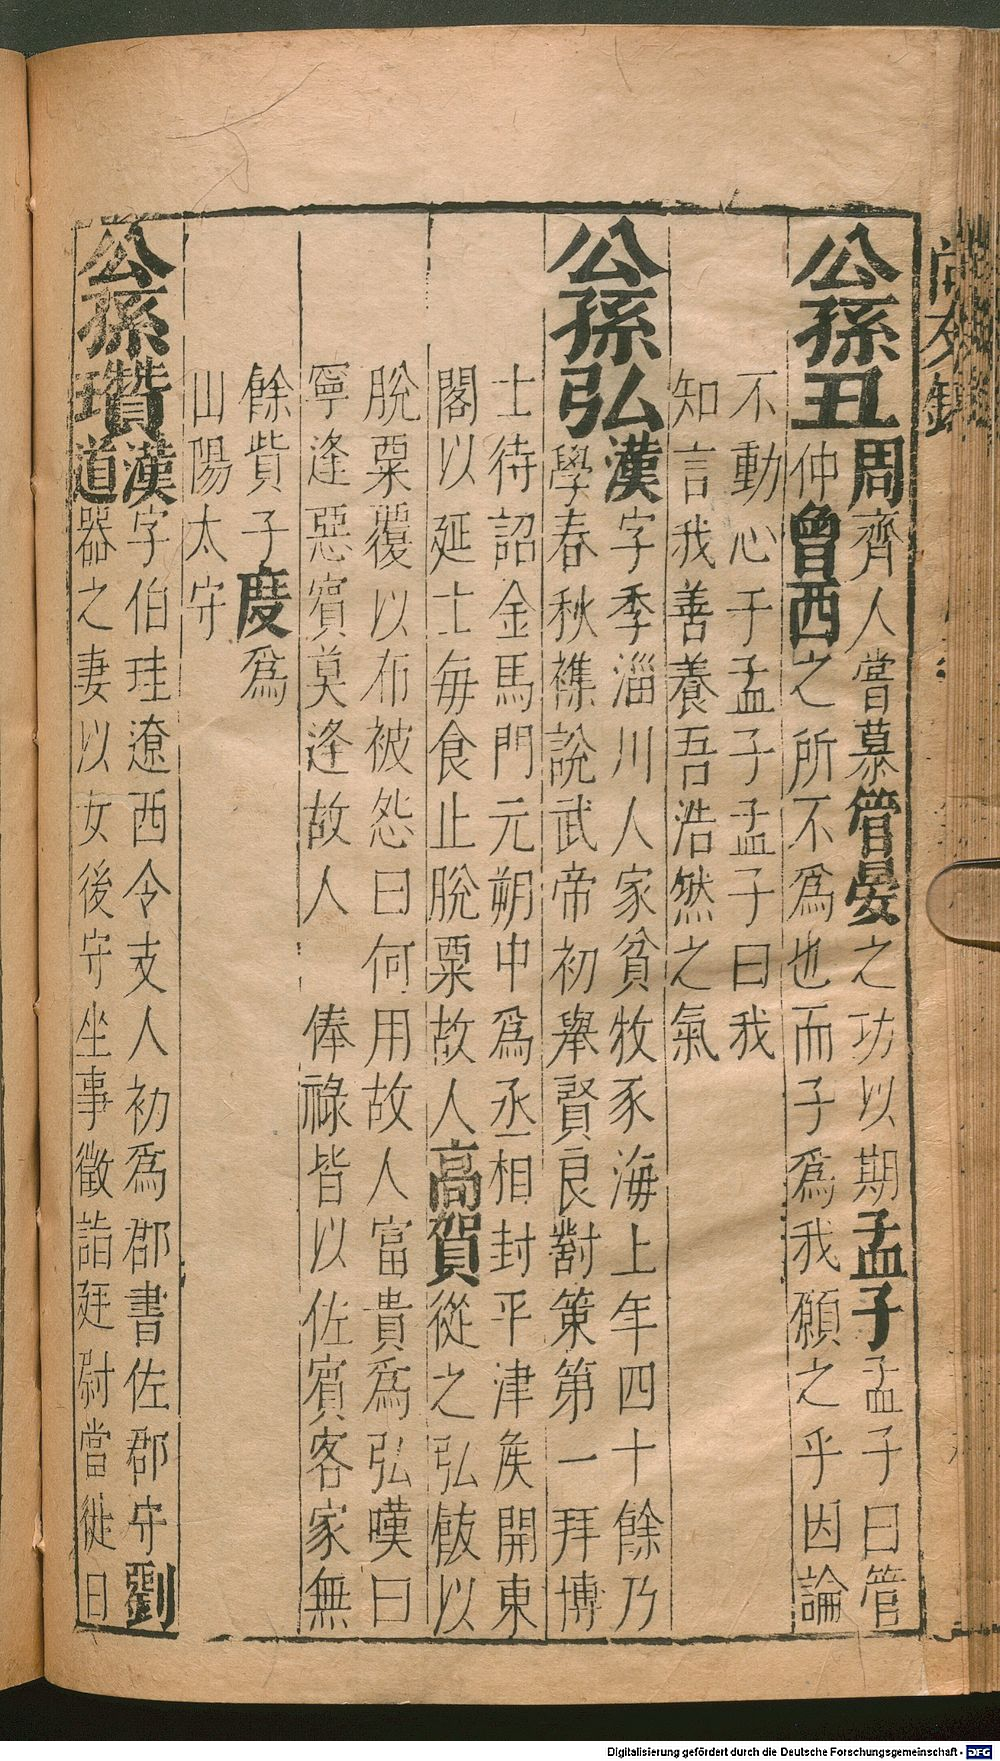 尚友錄
公孫丑
周齊人嘗慕管晏之功以期孟子孟子曰管
仲曾西之所不爲也而子爲我願之乎因論
不動心于孟子孟子曰我
知言我善養吾浩然之氣
公孫弘
漢字季淄川人家貧牧豕海上年四十餘乃
學春秋襍說武帝初舉賢良對策第一拜博
士待詔金馬門元朔中爲丞相封平津矦開東
閣以延士每食止脫粟故人高賀從之弘飯以
脫粟覆以布被怨曰何用故人富貴爲弘嘆曰
寧逢惡賓莫逢故人 俸祿皆以佐賓客家無
餘貲子度爲
山陽太守
公孫瓚
漢字伯珪遼西令支人初爲郡書佐郡守劉
道器之妻以女後守坐事徵詣廷尉當徙日
Digitalisierung gefördert durch die Deutsche Forschungsgemeinschaft - DFG